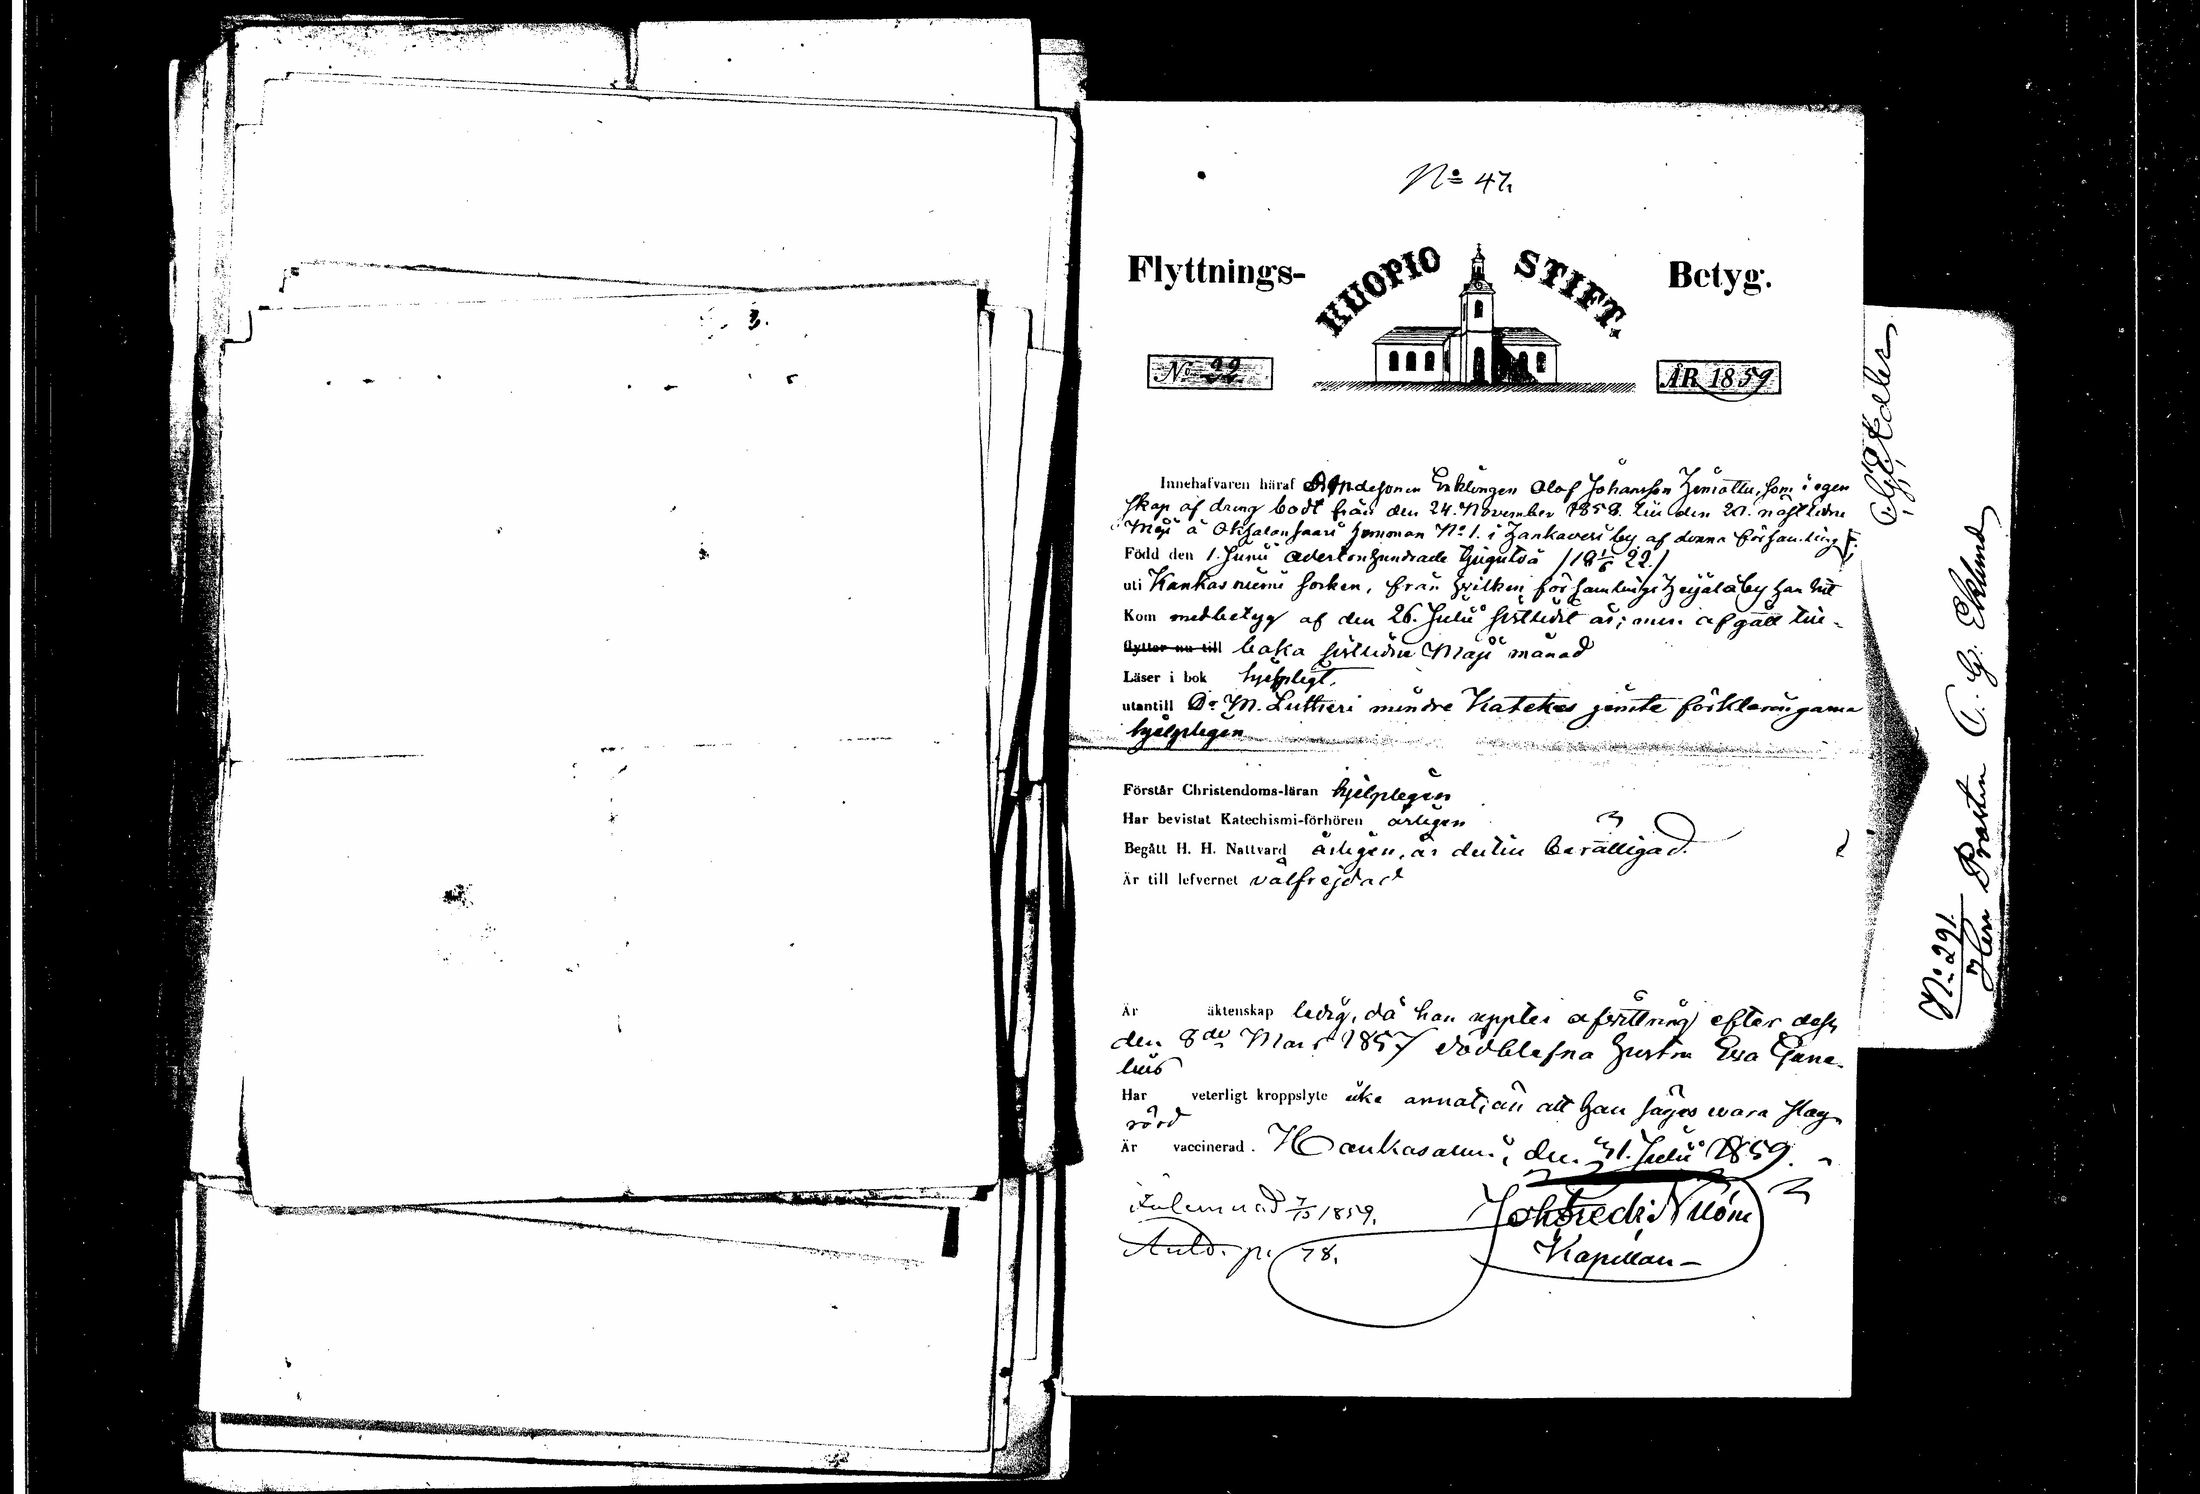 No 47.
Flyttnings- KUOPIO STIFT. Betyg.
No 32 ÅR 1859
Innehafvaren häraf Enklingen Olof Johansson som i egen
skap af dräng bodt från den 24. November 1858. till den 21. nästledne
Maji å hemman No 1. i by af denna församling
Född den 1. Junii adertonhundrade tjugutvå /18 1/6 22./
uti Kankas socken, från hvilken församlings by han hit
Kom med betyg af den 26. Julii sistledit år; men afgått till-
flyttar nu till baka sistledne Maji månad
Läser i bok hjelpligt.
utantill Dr M. Lutheri mindre Katekes jemte förklaringarna
hjelpligen
Förstår Christendoms-läran hjelpligen
Har bevistat Katechismi-förhören årligen
Begått H. H. Nattvard årligen, är dertill berättigad.
Är till lefvernet välfrejdad
Är äktenskap ledig, då han upptet afvittring efter dess
den 8de Mars 1857 dödblefna hustru Eva
Har veterligt kroppslyte icke annat, än att han säges wara slag
rörd
Är vaccinerad. Hankasalmi, den 31. Julii 1859.
1859.
p. 78.
Kapellan
No 291.
Herr Prosten C. G. Eklund